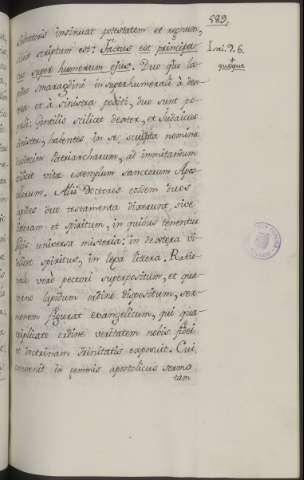 589.
Salvatoris insinuat potestatem et regnum,
sicut scriptum est: Factus est principa-
tus super humerum ejus. Duo que la-
pides smaragdini in superhumerali à dex-
tra et à sinistra positi, duo sunt po-
puli; Gentilis scilicet dexter, et Judaicus
sinister, habentes in se sculpta nomina
Patriarcharum, ad imitandum
vitæ exemplum sanctorum Apos-
tolorum. Alii Doctores eosdem duos
lapides duo testamenta dixerunt, sive
literam et spiritum, in quibus tenentur
universa misteria; in dextera vi-
delicet spiritus, in leva litera. Ratio-
nale verò pectori superpositum, et qua-
terno lapidum ordine dispositum, ser-
monem figurat evangelicum, qui qua-
druplicato ordine veritatem nobis fidei
et doctrinam Trinitatis exposuit. Cui
in gemmis apostolicus sermo
tam
Isai. 9. 6.